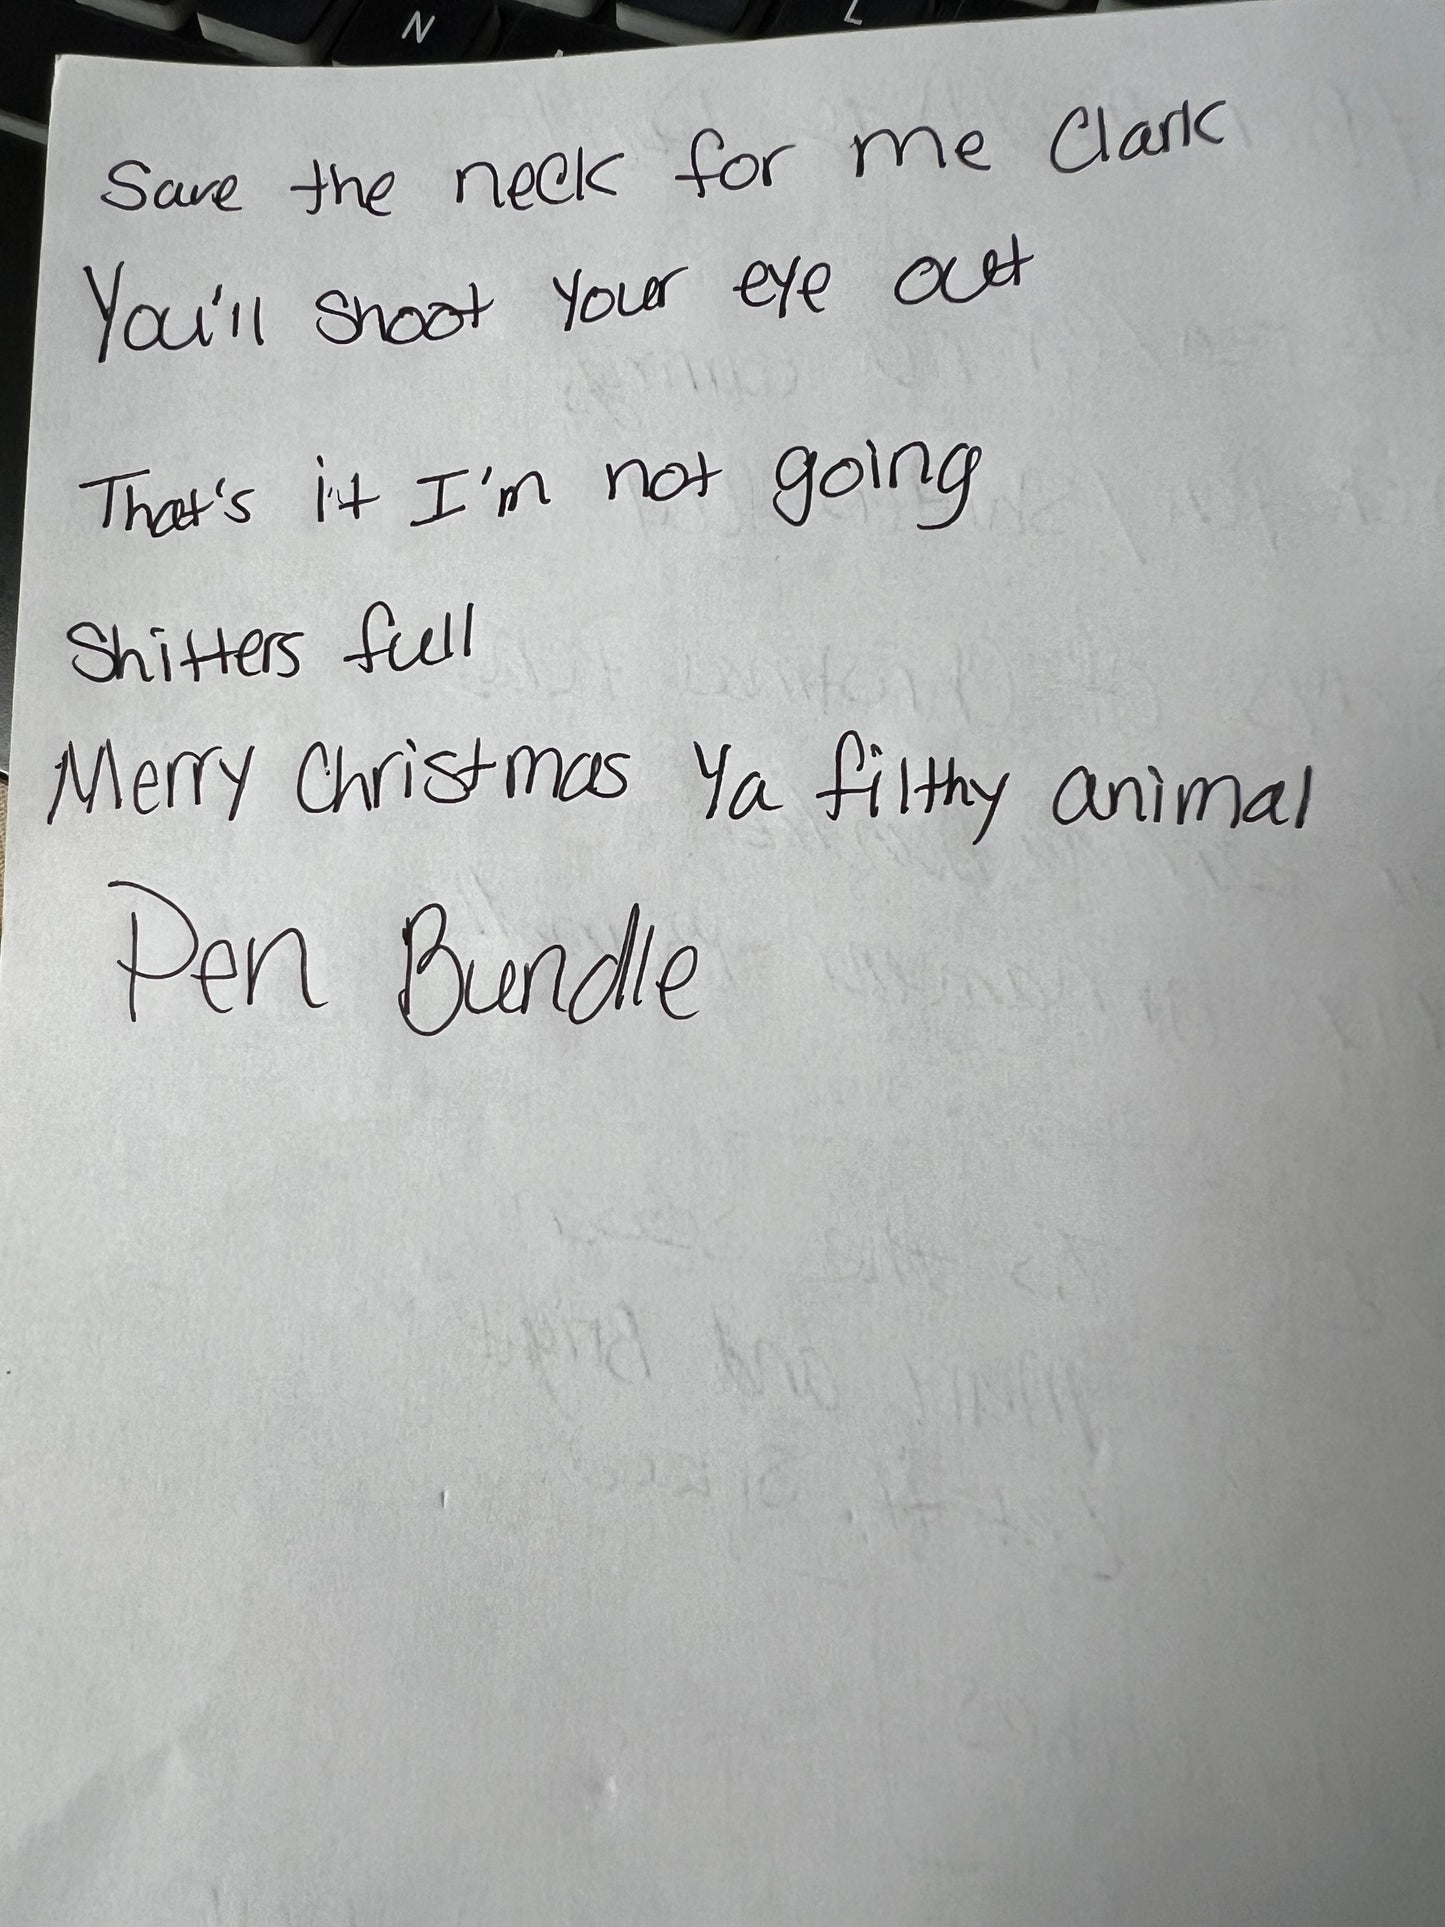 N L
Save the neck for me Clark
You'll shoot your eye out
That's it I'm not going
Shitters full
Merry Christmas Ya filthy animal
Pen Bundle